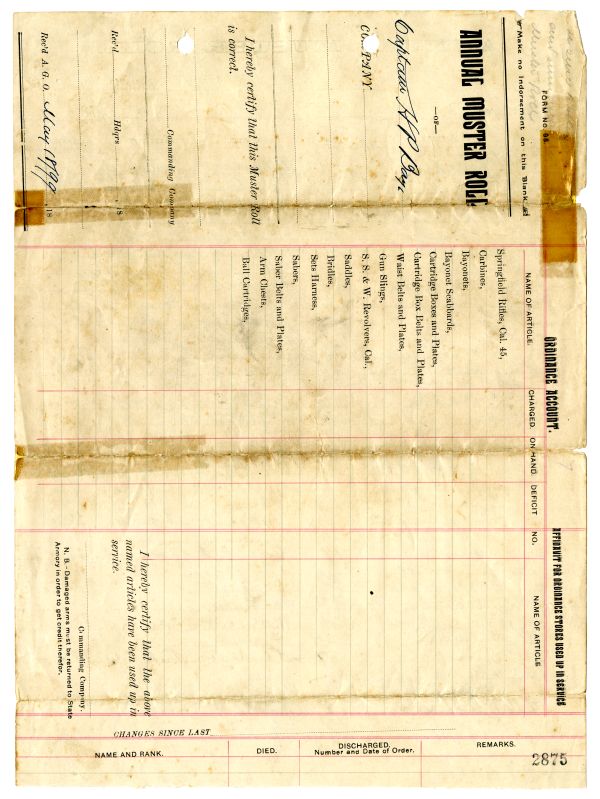 FORM No. 96
Make no Indorsement on this Blank.
ANNUAL MUSTER ROLL
—OF—
Captain H P
COMPANY
I hereby certify that this Muster Roll
is correct.
Commanding Company
Rec'd. Hdqrs. 18
Rec'd A. G. O. May 18 99 18
ORDINANCE ACCOUNT.
NAME OF ARTICLE. CHARGED. ON HAND DEFICIT
Springfield Rifles, Cal. 45,
Carbines,
Bayonets,
Bayonet Scabbards,
Cartridge Boxes and Plates,
Cartridge Box Belts and Plates,
Waist Belts and Plates,
Gun Slings,
S. S. & W. Revolvers, Cal.,
Saddles,
Bridles,
Sets Harness,
Sabers,
Saber Belts and Plates,
Arm Chests,
Ball Cartridges,
AFFIDAVIT FOR ORDINANCE STORES USED UP IN SERVICE
NO. NAME OF ARTICLE
I hereby certify that the above
named articles have been used up in
service.
Commanding Company.
N. B.-Damaged arms must be returned to State
Armory in order to get credit therefor.
CHANGES SINCE LAST
NAME AND RANK. DIED. DISCHARGED. REMARKS.
Number and Date of Order.
2875